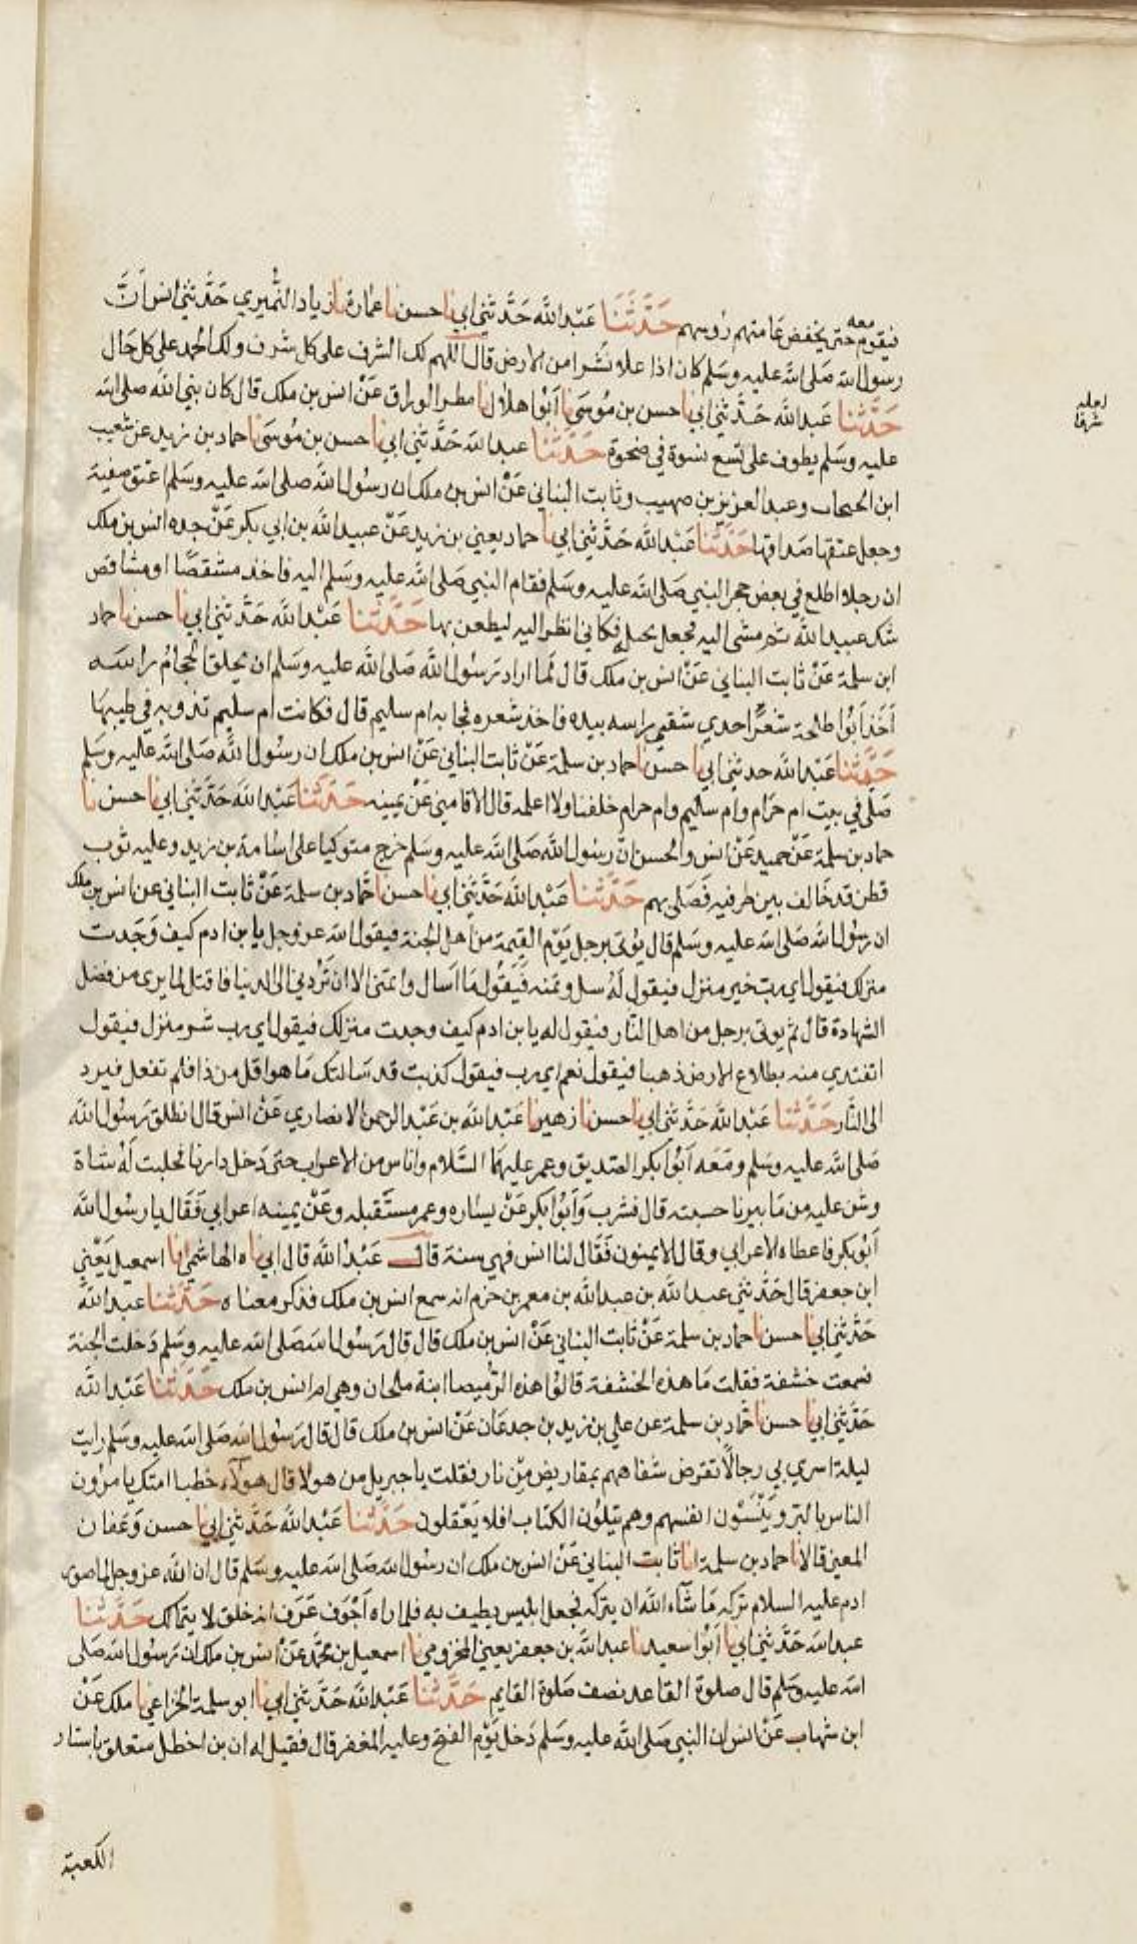 معه
فيقوم حتى يخفض عامتهم روسهم حَدَّثَنَا عَبْد اللَّه حَدَّثَني ابي نا حسن نا عمارة نا زياد النُّميري حَدَّثني انس اَنَّ
رسول الله صلى الله عليه وسلم كان اذا علا نشزا من الارض قال اللهم لك الشرف على كل شرف ولك الحمد على كل حال
لعله
شرفا
حَدَّثنا عبد الله حَدَّثني ابي نا حسن بن مُوسَى نا اَبُوا هلال نا مطر الوراق عَنْ انس بن ملك قال كان نبي الله صلى الله
عليه وسلم يطوف على تسع نسوة في ضحوة حَدَّثَنَا عبد الله حَدَّثني ابي نا حسن بن مُوسَى نا حماد بن زيد عن شعيب
ابن الحبحاب وعبد العزيز بن صهيب وثابت البناني عَنْ انس بن ملك ان رسول الله صلى الله عليه وسلم اعتق صفية
وجعل عتقها صداقها حَدَّثنا عَبْد الله حَدَّثني ابي نا حماد يعني بن زيد عَنْ عبيد الله بن ابي بكر عَنْ جده انس بن ملك
ان رجلا اطلع في بعض حجر النبي صَلى الله عليه وسَلم فقام النبي صَلى الله عليه وسَلم اليه فاخذ مشقصًا او مشاقص
شك عبيد الله ثم مشى اليه فجعل يختله فكاني انظر اليه ليطعن بها حَدَّثَنَا عَبْد الله حَدَّثني ابي نا حسن نا حماد
ابن سلمة عَنْ ثابت البناني عَنْ انس بن ملك قال لَما اراد رَسُول الله صَلى الله عليه وسَلم ان يحلق الحجام راسَه
اَخَذ اَبُوا طلحة شعرًا احدي شقي راسه بيده فاخذ شعره فجا به ام سليم قال فكانت ام سليم تذوبه في طيبها
حَدَّثَنا عَبْد الله حدثني ابي نا حسن نا حماد بن سلمة عَنْ ثابت البناني عَنْ انس بن ملك ان رسُول الله صَلى الله عليه وسَلم
صَلى في بيت ام حَرام وام سليم وام حرام خلفنا ولا اعلمه قال الا اقامني عَنْ يمينه حَدَّثَنا عَبْد الله حَدَّثني ابي نا حسن نا
حماد بن سلمة عَنْ حميد عَنْ انس والحسن انّ رسول الله صَلى الله عليه وسلم خرج متوكيا على اسَامة بن زيد وعليه ثوب
قطن قد خالف بين طرفيه فَصَلى بهم حَدَّثَنَا عَبْد الله حَدَّثَني ابي نا حسن نا حَماد بن سلمة عَنْ ثابت البناني عن انس بن ملك
ان رسُول الله صَلى الله عليه وسلم قال يُوتى برجل يَوْم القيمة من اهل الجنة فيقول الله عز وجل يا بن ادم كيف وَجَدت
منزلك فيقول اي رب خير منزل فيقول لَهُ سل وتمنه فَيَقُول مَا اَسال واتمنى الا ان تردني الى الدنيا فاقتل لما يرى من فضل
الشهادة قال ثم يوتى برجل من اهل النَّار فيقول له يا بن ادم كيف وجدت منزلك فيقول اي رب شر منزل فيقول
اتفتدي منه بطلاع الارض ذهبا فيقول نعم اي رب فيقول كذبت قد سَالتك مَا هو اقل من ذا فلم تفعل فيرد
الى النَّار حَدَّثَنا عَبْد الله حَدَّثني ابي نا حسن نا زهير نا عَبْد الله بن عَبْد الرحمن الانصاري عَنْ انس قال انطلق رَسُول الله
صَلى الله عليه وسلم ومَعَه اَبُوا بكر الصّديق وعمر عليهمَا السَّلام واناس من الاعراب حتى دَخل دارنا فحلبت لَهُ شاة
وشن عليه من مَا بيرنا حسبته قال فشرب وَاَبُوا بكر عَنْ يسَاره وعمر مستَقبله وعَنْ يمينه اعرابي فَقَال يا رسُول الله
اَبُو بكر فاعطاه الاعرابي وقال الايمنون فَقَال لنا انس فهي سنة قال عَبْدُ الله قال ابي ناه الهاشمي انا اسمعيل يَعْني
ابن جعفر قال حَدَّثني عبد الله بن عبد الله بن معمر بن حزم انه سمع انس بن ملك فذكر معناه حَدَّثَنا عبد الله
حَدَّثني ابي نا حسن نا حماد بن سلمة عَنْ ثابت البناني عَنْ انس بن ملك قال قال رَسُول الله صَلى الله عليه وسَلم دَخلت الجنة
فسمعت خشفة فقلت مَا هذه الخشفة قالوُا هذه الرُّميصا ابنة ملحان وهي ام انس بن ملك حَدَّثنا عَبْد الله
حَدَّثني ابي نا حسن نا حَماد بن سلمة عن علي بن زيد بن جدعَان عَنْ انس بن ملك قال قال رَسُول الله صَلى الله عليه وسَلم رايت
ليلة اسري بي رجالًا تقرض شفاههم بمقاريض من نار فقلت يا جبريل من هولا قال هولآء خطبا امتك يامرُون
الناس بالبر ويَنْسَون انفسهم وهم يتلوُن الكتاب افلا يعَقلون حَدَّثنا عَبْد الله حَدَّثني ابي نا حسن وَعَفان
المعنى قالا نا حماد بن سلمة انا ثابت البناني عَنْ انس بن ملك ان رسُول الله صَلى الله عليه وسلم قال ان الله عز وجل لما صور
ادم عليه السلام تركه مَا شَآء الله ان يتركه فجعل ابليس يطيف به فلما راه اَجْوَف عَرف انه خلق لا يتمالك حَدَّثنا
عبد الله حَدَّثني ابي نا اَبُوا سعيد نا عبد الله بن جعفر يعني المخزومي نا اسمعيل بن محَمَّد عَنْ انس بن ملك ان رَسُول الله صَلى
الله عليه وسَلم قال صلوة القاعد نصف صَلوة القايم حَدَّثَنا عَبْد الله حَدَّثني ابي نا ابو سلمة الخزاعي نا ملك عَنْ
ابن شهاب عَنْ انس ان النبي صَلى الله عليه وسلم دَخل يَوْم الفتح وعليه المغفر قال فقيل له ان بن اخطل متعلق باستار
الكعبة